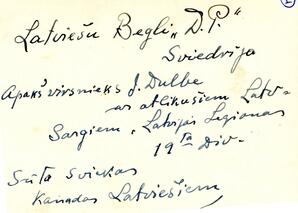 Latviešu Begli „D.P."
Sviedrija
Apakš virsnieks J. Dulbe
ar atlikušiem Latv-
Sargiem, Latvijas Legionas
19 ta Div.
Sūta Sveikas
Kanadas Latviešiem